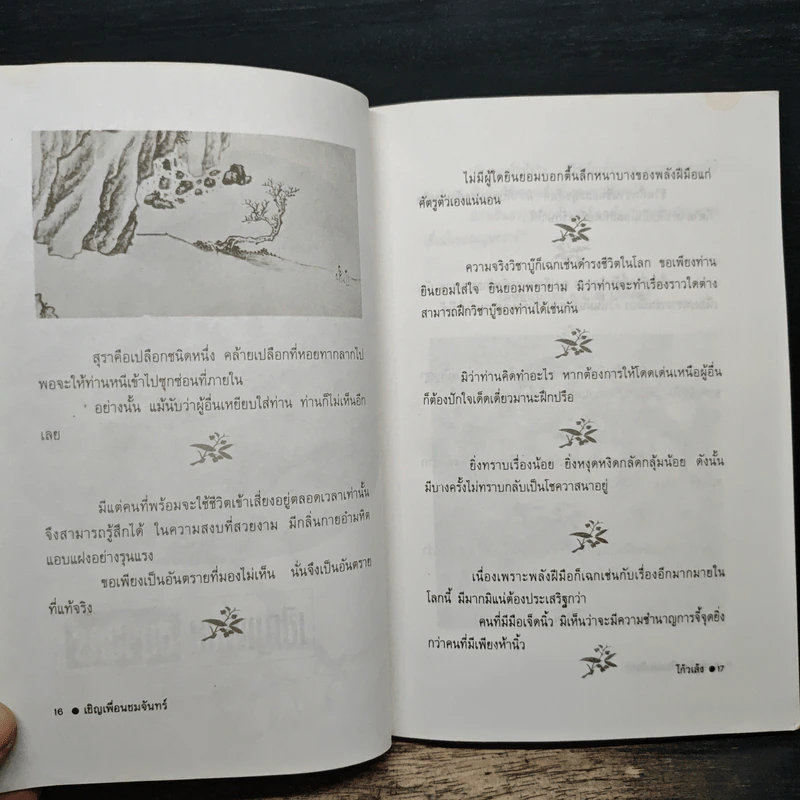 สุราคือเปลือกชนิดหนึ่ง คล้ายเปลือกที่หอยทากลากไป
พอจะให้ท่านหนีเข้าไปซุกซ่อนที่ภายใน
อย่างนั้น แม้นับว่าผู้อื่นเหยียบใส่ท่าน ท่านก็ไม่เห็นอีก
เลย
มีแต่คนที่พร้อมจะใช้ชีวิตเข้าเสี่ยงอยู่ตลอดเวลาเท่านั้น
จึงสามารถรู้สึกได้ ในความสงบที่สวยงาม มีกลิ่นกายอำมหิต
แอบแฝงอย่างรุนแรง
ขอเพียงเป็นอันตรายที่มองไม่เห็น นั่นจึงเป็นอันตราย
ที่แท้จริง
16 ● เชิญเพื่อนชมจันทร์
ไม่มีผู้ใดยินยอมบอกตื้นลึกหนาบางของพลังฝีมือแก่
ศัตรูตัวเองแน่นอน
ความจริงวิชาบู๊ก็เฉกเช่นดำรงชีวิตในโลก ขอเพียงท่าน
ยินยอมใส่ใจ ยินยอมพยายาม มิว่าท่านจะทำเรื่องราวใดต่าง
สามารถฝึกวิชาบู๊ของท่านได้เช่นกัน
มิว่าท่านคิดทำอะไร หากต้องการให้โดดเด่นเหนือผู้อื่น
ก็ต้องปักใจเด็ดเดี่ยวมานะฝึกปรือ
ยิ่งทราบเรื่องน้อย ยิ่งหงุดหงิดกลัดกลุ้มน้อย ดังนั้น
มีบางครั้งไม่ทราบกลับเป็นโชควาสนาอยู่
เนื่องเพราะพลังฝีมือก็เฉกเช่นกับเรื่องอีกมากมายใน
โลกนี้ มีมากมิแน่ต้องประเสริฐกว่า
คนที่มีมือเจ็ดนิ้ว มิเห็นว่าจะมีความชำนาญการจี้จุดยิ่ง
กว่าคนที่มีเพียงห้านิ้ว
โก้วเล้ง ● 17